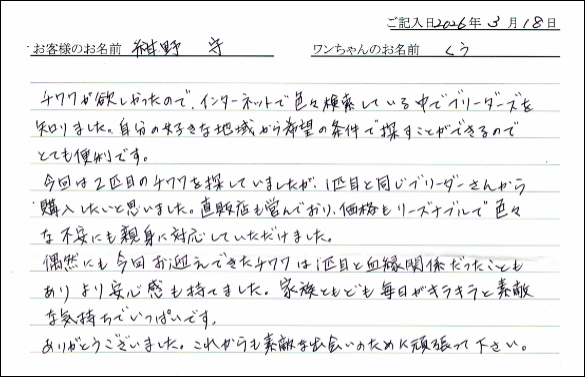 ご記入日2026年 3月18日
お客様のお名前 紺野 守 ワンちゃんのお名前 くう
チワワが欲しかったので、インターネットで色々検索している中でブリーダーズを
知りました。自分の好きな地域から希望の条件で探すことができるので
とても便利です。
今回は2匹目のチワワを探していましたが、1匹目と同じブリーダーさんから
購入したいと思いました。直販店も営んでおり、価格もリーズナブルで色々
な不安にも親身に対応していただけました。
偶然にも今回お迎えできたチワワは1匹目と血縁関係だったことも
ありより安心感も持てました。家族ともども毎日がキラキラと素敵
な気持ちでいっぱいです。
ありがとうございました。これからも素敵な出会いのために頑張って下さい。